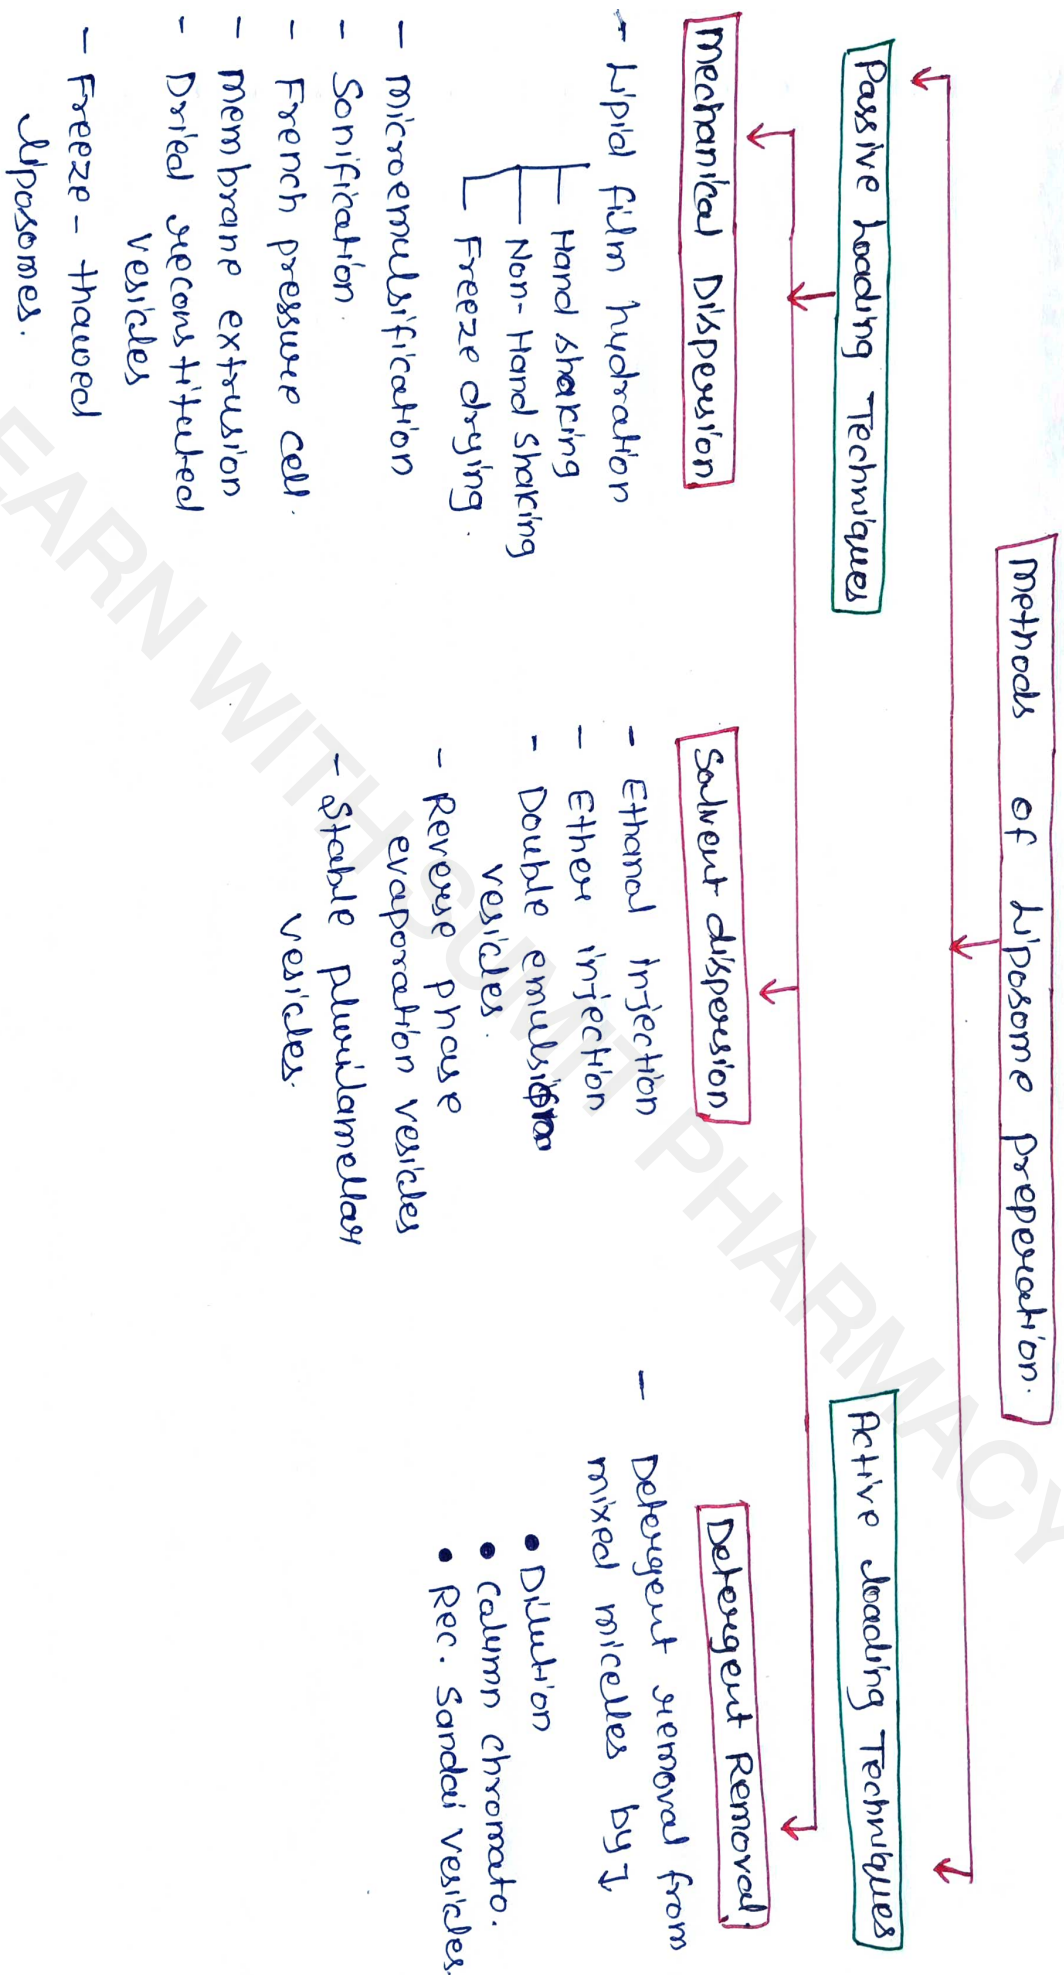 Methods of Liposome Preperation.
Passive Loading Techniques
Active loading Techniques
Mechanical Dispersion
- Lipid film hydration
Hand shaking
Non-Hand shaking
Freeze drying.
- microemulsification
- Sonification.
- French pressure cell.
- membrane extrusion
- Dried reconstituted
vesicles
- Freeze-thawed
liposomes.
Solvent dispersion
- Ethanol injection
- Ether injection
- Double emulsion
vesicles.
- Reverse phase
evaporation vesicles
- Stable plurilamellar
vesicles.
Detergent Removal.
- Detergent removal from
mixed micelles by ↓
• Dilution
• Column chromato.
• Rec. Sandai vesicles.
LEARN WITH SUMIT PHARMACY